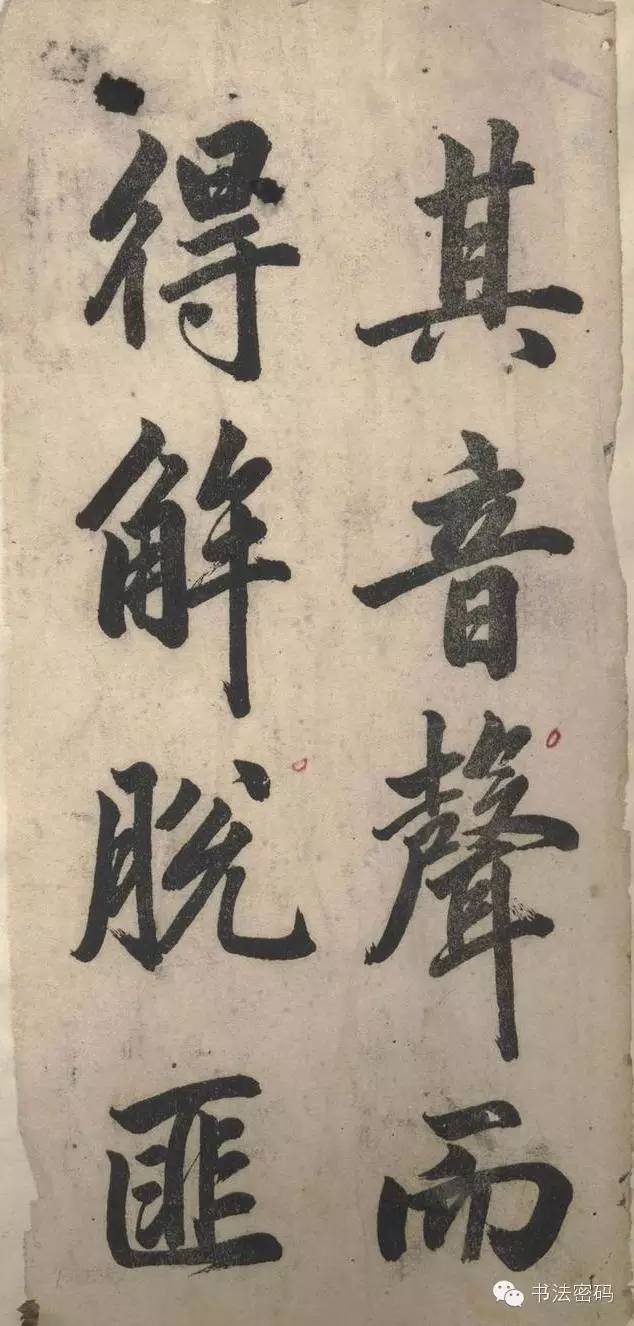 其音聲而
得解脱匪
书法密码